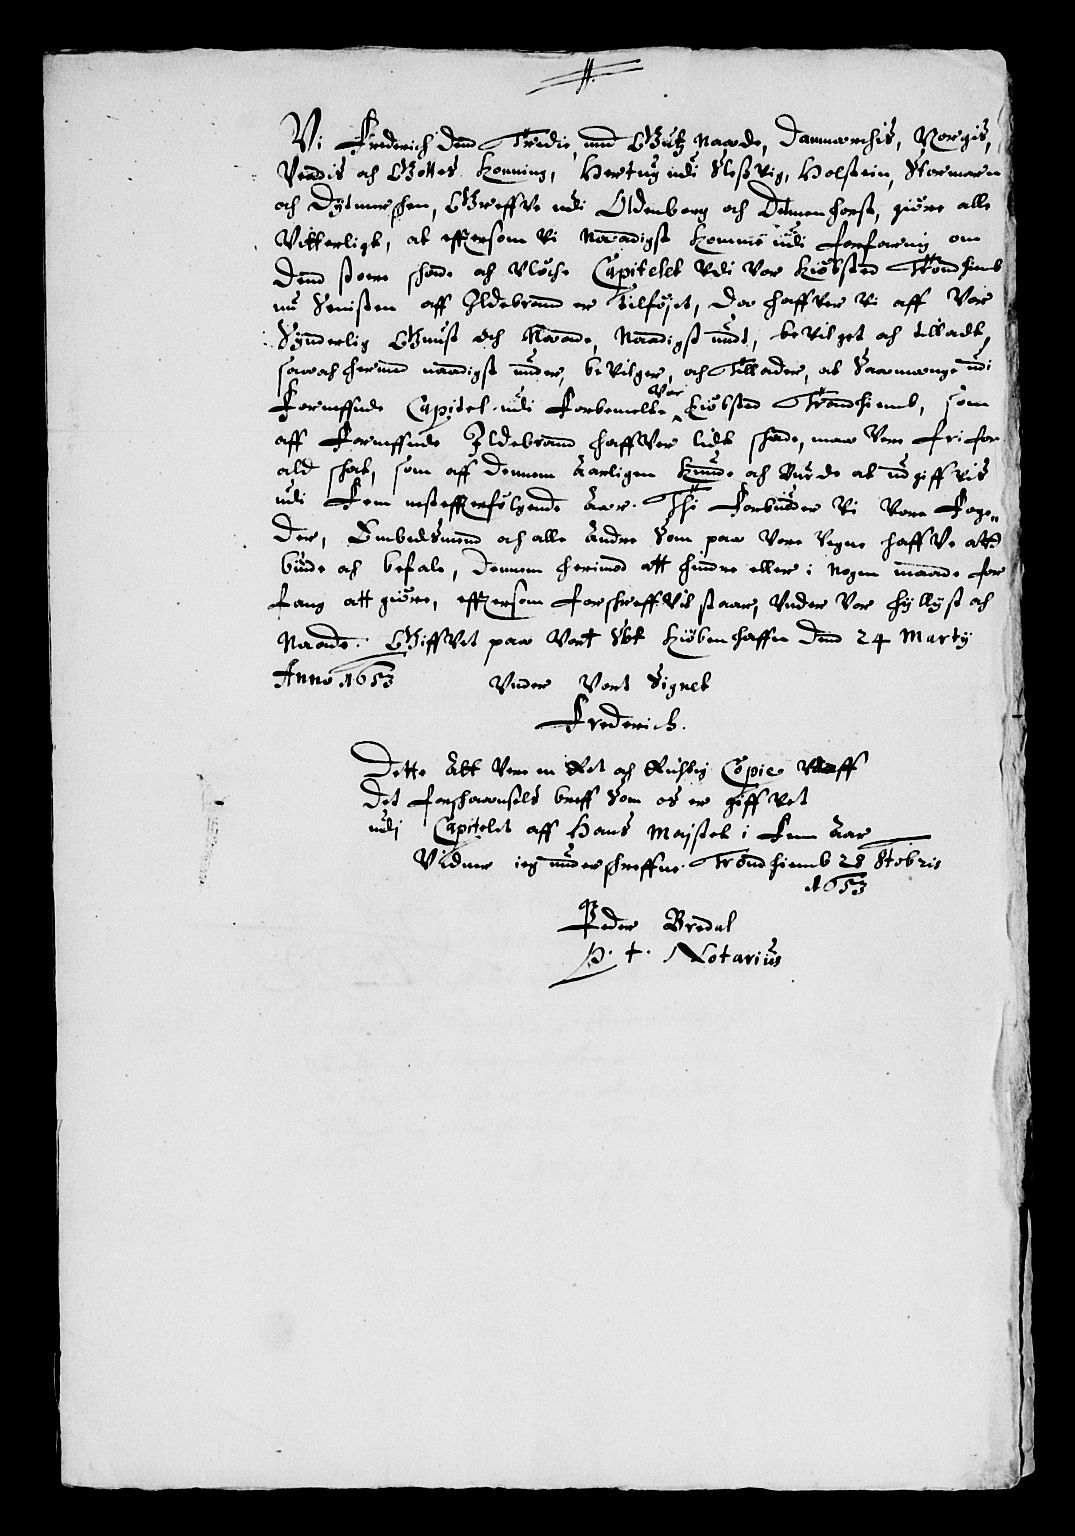 Vi Friderich den Tredie, med Gudtz Naade, Danmarchis, Norgis,
Vendis och Gottes Konning, Hertug udi Slessvig, Holstein, Stormarn
och Dytmerschen, Greffve udi Oldenborg och Delmenhorst, giøre alle
Vitterligt, at effttersom Vi Naadigst kommē udi forfaring om
Dend stoere schade och Vlöche Capitelet Vdi Vor Kiöbsted Trondhiemb
nu Senisten aff Ildebrand er Tilföjet, Da haffver Vi aff Vor
Synderlig Gunst och Naade, Naadigst undt, beVilget och tilladt,
saa och hermed naadigst under, beVilger, och Tillader, at Saamange udi
Formffnde Capitel udi Forbemelte Vor Kiöbsted Trondhiemb, som
aff Formffnde Ildebrand haffVer lidt schade, maa Vere fri for
ald schat, som aff dennem Aarligen Kunde och burde at udgiffvis
udi Fem nestefftterfölgende Aar. Thi Forbuder Vi Vore Foge„
der, Embedsmend och alle Andre Som paa Vore Vegne haffVe att
biude och befale, Dennem herimod att hindre eller i Nogen maade for
fang att giöre, effttersom forschreffvit staar, Under Vor hyllist och
Naade. Giffvet paa Vort Slot Kiöbenhaffn den 24 Marty
Anno 1653 Under Vort Signet
Frederich.
Dette Att Vere en Ret och Richtig Copie aff
det forschaansels breff Som os er giffvet
udj Capitelet aff Hans Majstet i Fem Aar
Vidner ieg underschreffne. Trondhiemb 28 8tobris
1653
Peder Bredal
p. t. Notarius